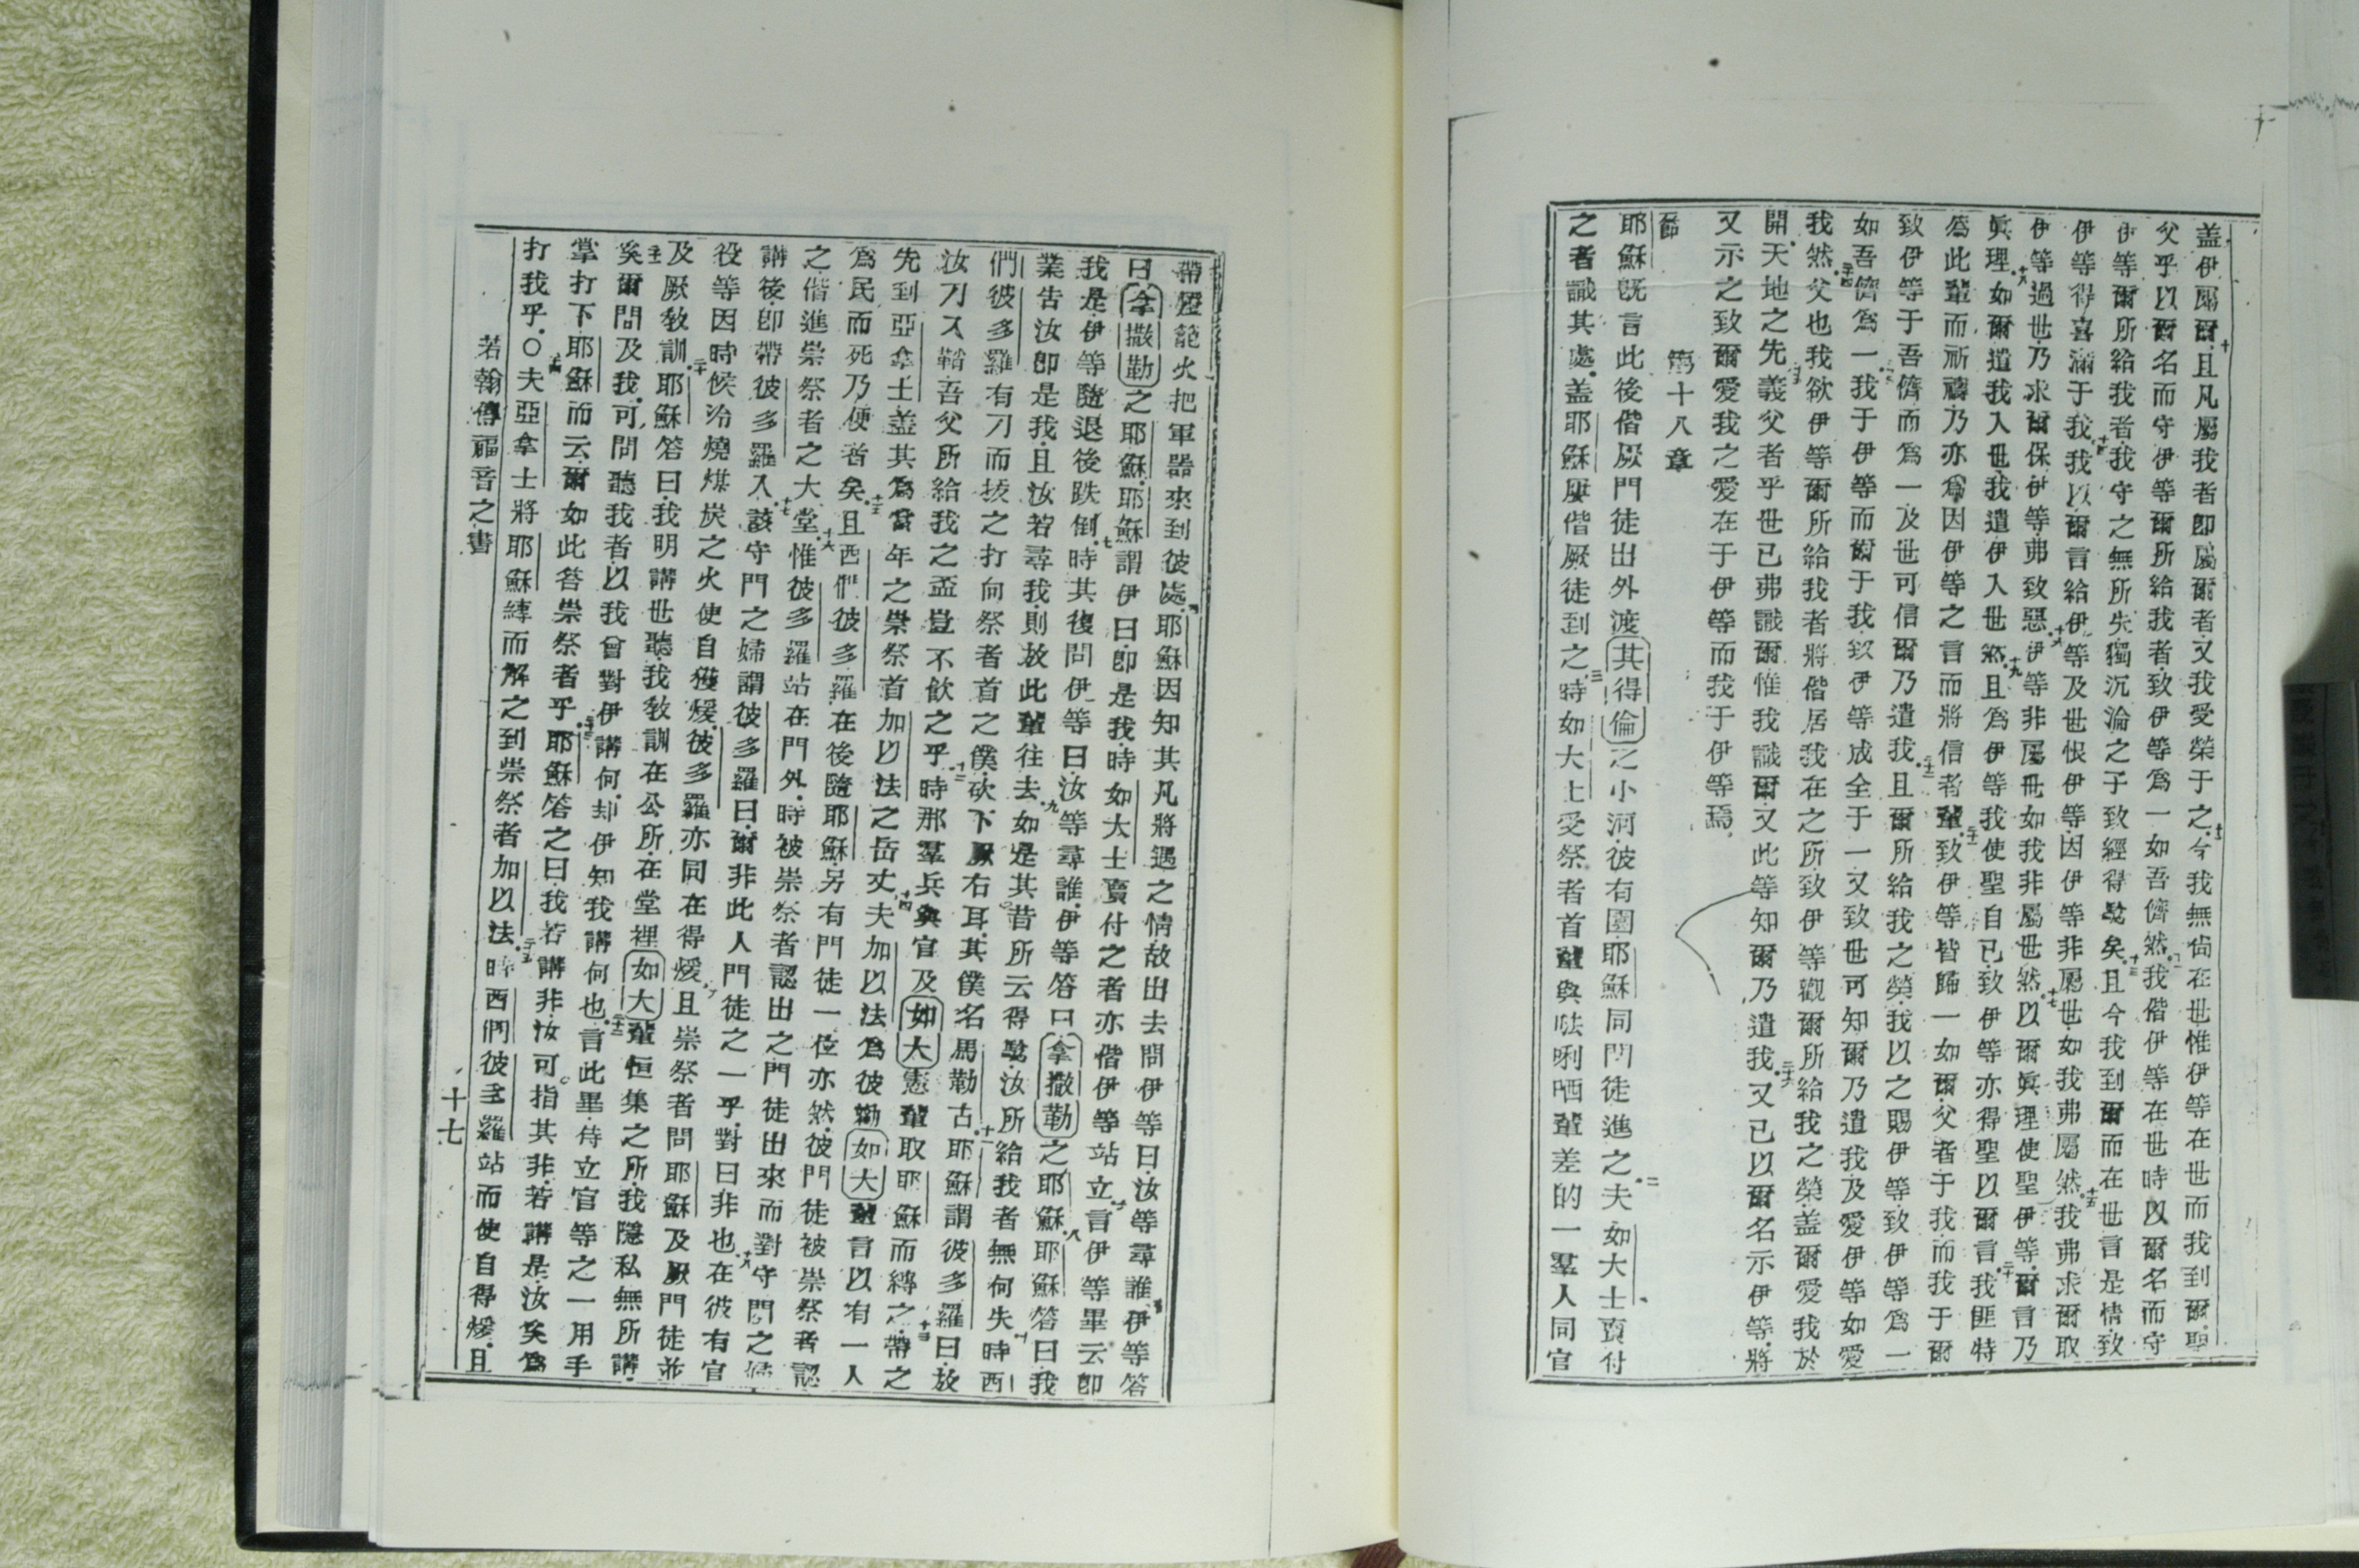 盖伊屬爾十且凡屬我者卽屬爾者又我受榮于之十一今我無尙在世惟伊等在世而我到爾聖
父乎以爾名而守伊等爾所給我者致伊等爲一如吾儕然十二我偕伊等在世時以爾名而守
伊等爾所給我者我守之無所失獨沉淪之子致經得驗矣十三且今我到爾而在世言是情致
伊等得喜滿于我十四我以爾言給伊等及世恨伊等因伊等非屬世如我弗屬然十五我弗求爾取
伊等過世乃求爾保伊等弗致惡十六伊等非屬世如我非屬世然十七以爾眞理使聖伊等爾言乃
眞理十八如爾遣我入世我遣伊入世然十九且爲伊等我使聖自已致伊等亦得聖以爾言二十我匪特
爲此輩而祈禱乃亦爲因伊等之言而將信者輩二十一致伊等皆歸一如爾父者于我而我于爾
致伊等于吾儕而爲一及世可信爾乃遣我二十二且爾所給我之榮我以之賜伊等致伊等爲一
如吾儕爲一二十三我于伊等而爾于我致伊等成全于一又致世可知爾乃遣我及愛伊等如愛
我然二十四父也我欲伊等爾所給我者將偕居我在之所致伊等觀爾所給我之榮盖爾愛我於
開天地之先二十五義父者乎世已弗識爾惟我識爾又此等知爾乃遣我二十六又已以爾名示伊等將
又示之致爾愛我之愛在于伊等而我于伊等焉
第十八章
一節
耶穌既言此後偕厥門徒出外渡其得倫之小河彼有園耶穌同門徒進之二夫如大士賣付
之者識其處盖耶穌屢偕厥徒到之三時如大士受祭者首輩與㕸唎哂輩差的一羣人同官
帶燈籠火把軍器來到彼處四耶穌因知其凡將遇之情故出去問伊等曰汝等尋誰五伊等答
曰拿撒勒之耶穌耶穌謂伊曰卽是我時如大士賣付之者亦偕伊等站立六言伊等畢云卽
我是伊等隨退後跌倒七時其復問伊等曰汝等尋誰伊等答曰拿撒勒之耶穌八耶穌答曰我
業告汝卽是我且汝若尋我則放此輩往去九如是其昔所云得驗汝所給我者無何失十時西
們彼多羅有刀而拔之打向祭者首之僕砍下厥右耳其僕名馬勒古十一耶穌謂彼多羅曰放
汝刀入鞘吾父所給我之盃豈不飲之乎十二時那羣兵與官及如大憲輩取耶穌而縛之十三帶之
先到亞拿士盖其爲當年之崇祭首加以法之岳丈十四夫加以法爲彼勸如大輩言以有一人
爲民而死乃便者矣十五且西們彼多羅在後隨耶穌另有門徒一位亦然彼門徒被崇祭者認
之偕進崇祭者之大堂十六惟彼多羅站在門外時被崇祭者認出之門徒出來而對守門之婦
講後卽帶彼多羅入十七該守門之婦謂彼多羅曰爾非此人門徒之一乎對曰非也十八在彼有官
役等因時候冷燒煤炭之火使自獲煖彼多羅亦同在得煖十九且崇祭者問耶穌及厥門徒並
及厥敎訓二十耶穌答曰我明講世聽我敎訓在公所在堂裡如大輩恒集之所我隱私無所講
二十一矣爾問及我可問聽我者以我曾對伊講何却伊知我講何也二十二言此畢侍立官等之一用手
掌打下耶穌而云爾如此答崇祭者乎二十三耶穌答之曰我若講非汝可指其非若講是汝矣爲
打我乎○二十四夫亞拿士將耶穌縛而解之到崇祭者加以法二十五時西們彼多羅站而使自得煖且
若翰傳福音之書
十七